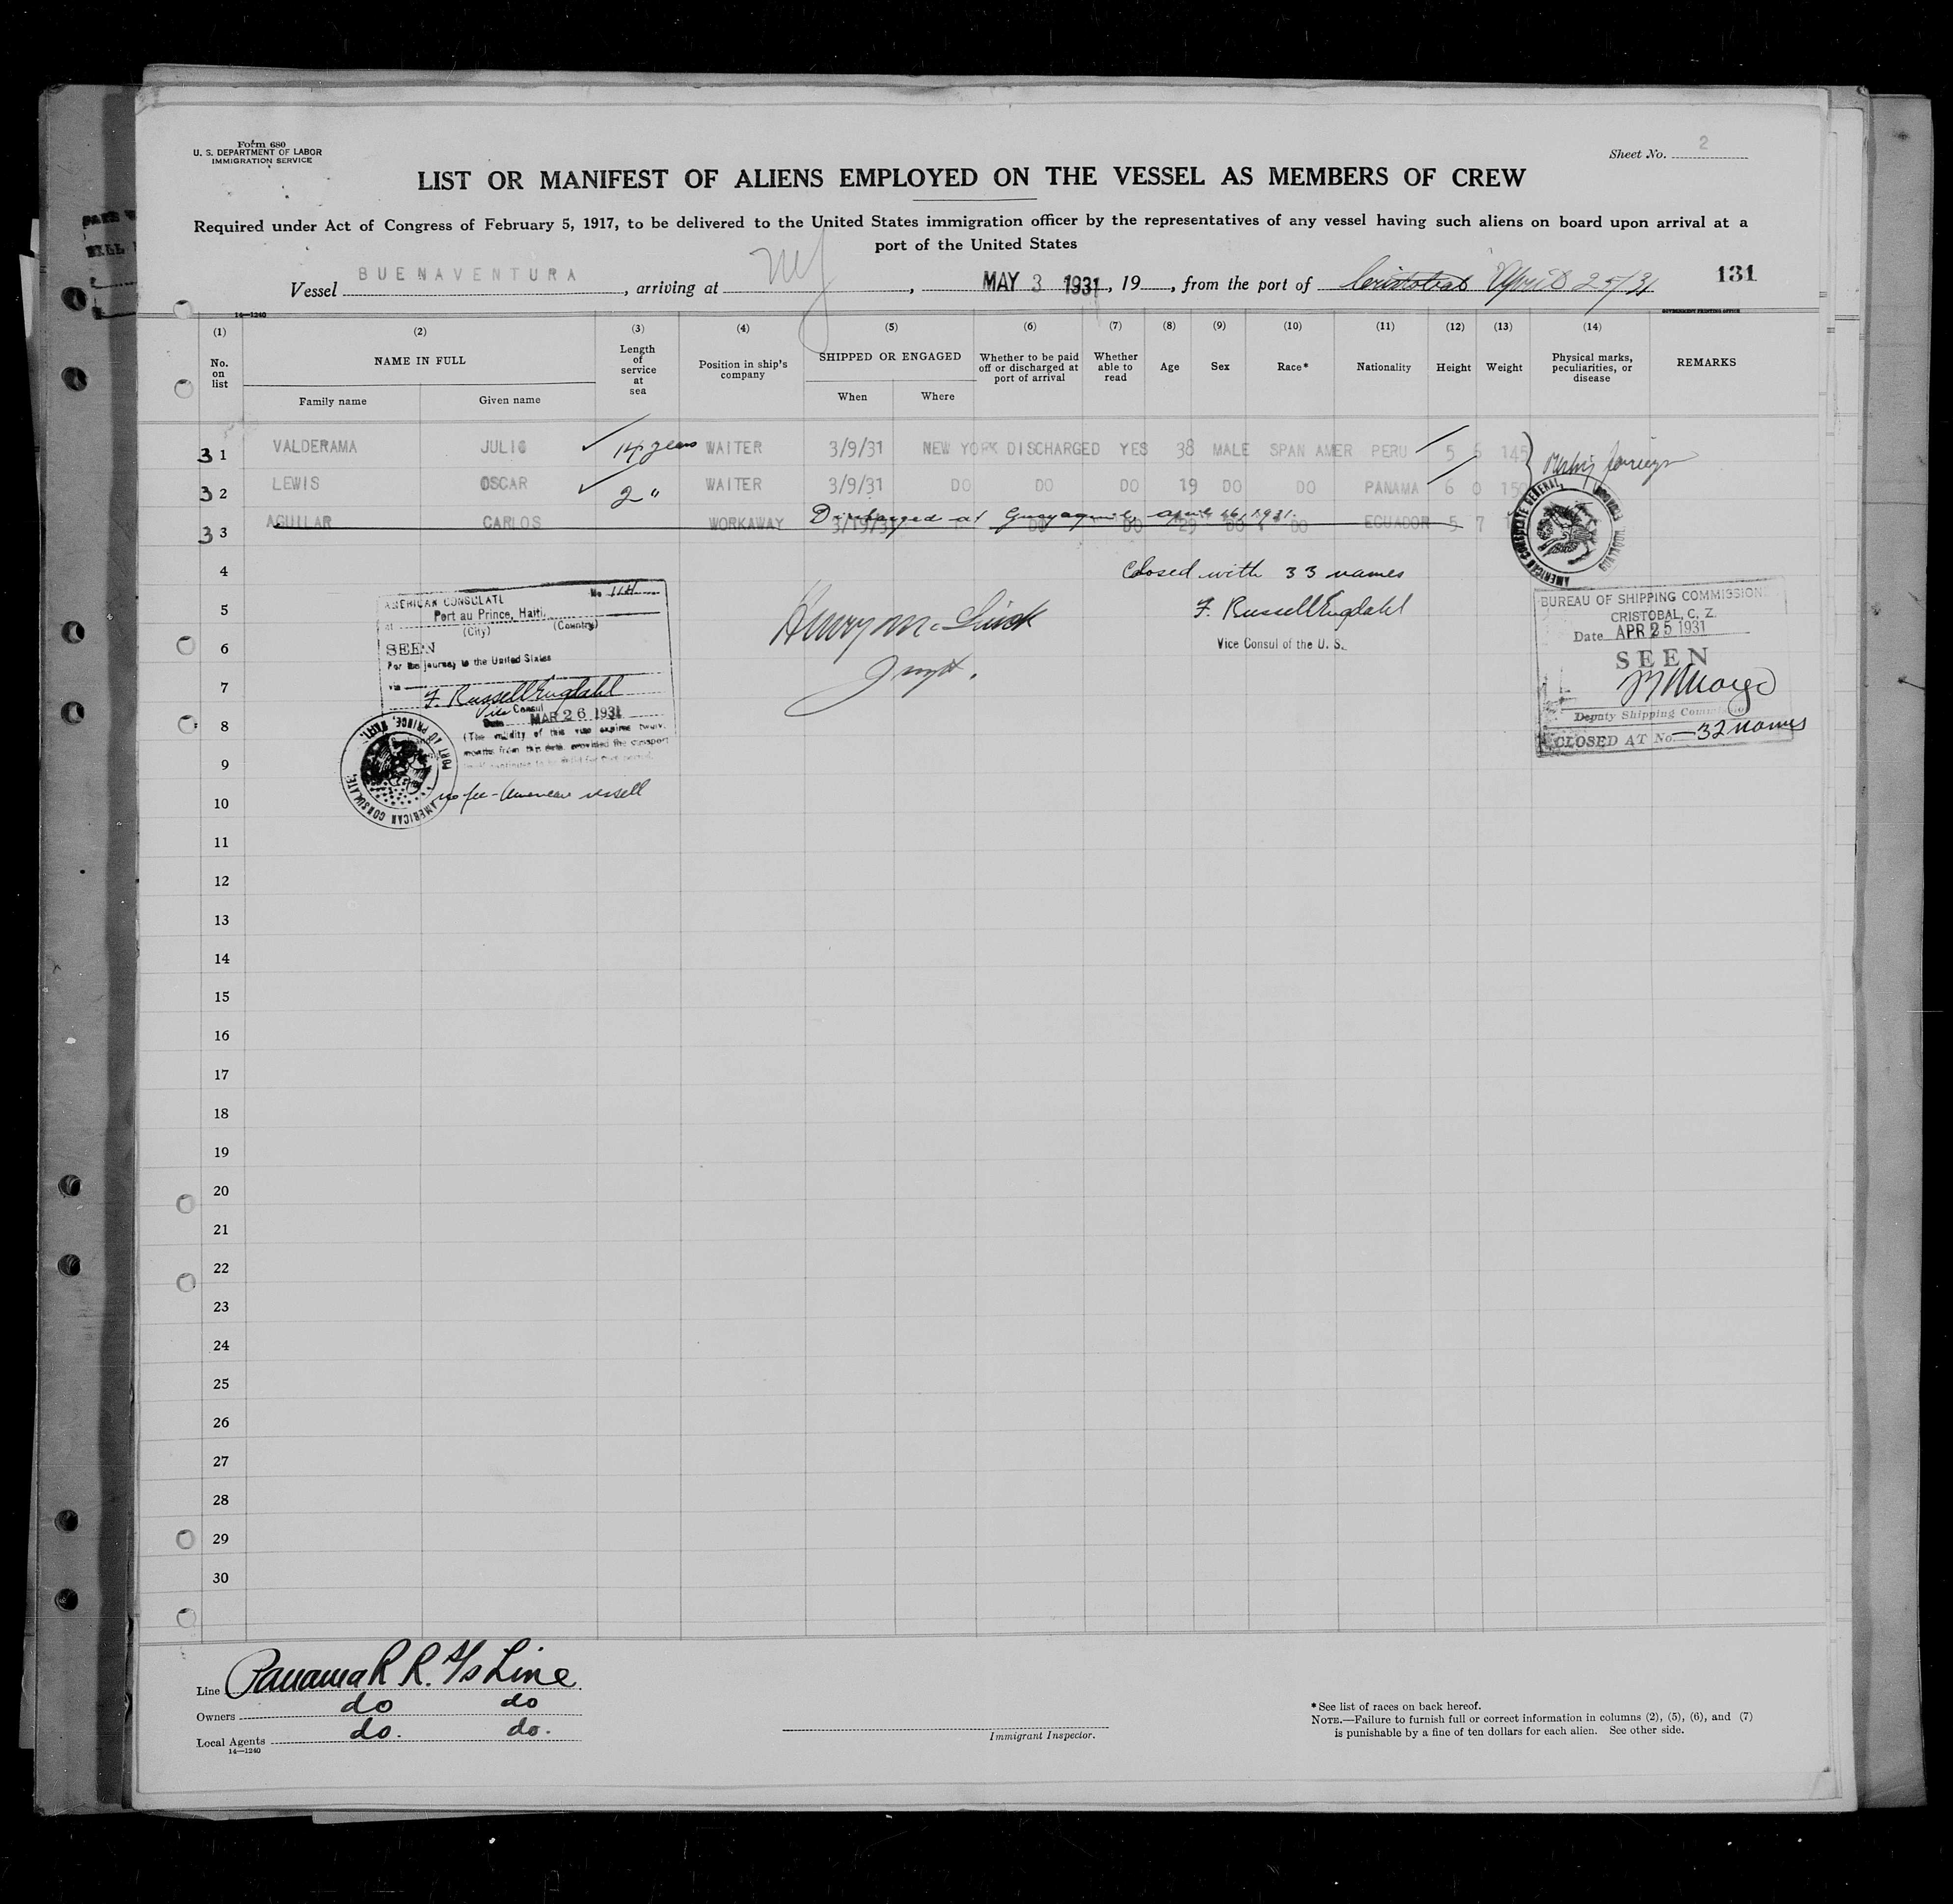 Form 680
U. S. DEPARTMENT OF LABOR
IMMIGRATION SERVICE
Sheet No. 2
LIST OR MANIFEST OF ALIENS EMPLOYED ON THE VESSEL AS MEMBERS OF CREW
Required under Act of Congress of February 5, 1917, to be delivered to the United States immigration officer by the representatives of any vessel having such aliens on board upon arrival at a
port of the United States
Vessel BUENAVENTURA, arriving at NY, MAY 3 1931, 19, from the port of Cristobal April 25/31
131
14—1240
GOVERNMENT PRINTING OFFICE
(1) (2) (3) (4) (5) (6) (7) (8) (9) (10) (11) (12) (13) (14)
No. on list
NAME IN FULL
Family name
Given name
Length of service at sea
Position in ship's company
SHIPPED OR ENGAGED
When
Where
Whether to be paid off or discharged at port of arrival
Whether able to read
Age
Sex
Race*
Nationality
Height
Weight
Physical marks, peculiarities, or disease
REMARKS
31 VALDERAMA JULIO 14 years WAITER 3/9/31 NEW YORK DISCHARGED YES 38 MALE SPAN AMER PERU 5 6 145
32 LEWIS OSCAR 2 " WAITER 3/9/31 DO DO DO 19 DO DO PANAMA 6 0 150
Discharged at Guayaquil, April 16, 1931.
33 AGUILAR CARLOS WORKAWAY 3/19/31 DO DO 29 DO DO ECUADOR 5 7
AMERICAN CONSULATE GENERAL, GUAYAQUIL
4
5
6
7
8
9
10
11
12
13
14
15
16
17
18
19
20
21
22
23
24
25
26
27
28
29
30
Closed with 33 names
F. Russell Engdahl
Vice Consul of the U. S.
AMERICAN CONSULATE
No 114
at Port au Prince, Haiti.
(City) (Country)
SEEN
For the journey to the United States
via
F. Russell Engdahl
Vice Consul
Date MAR 26 1931
(The validity of this visa expires twelve
months from this date provided the passport
AMERICAN CONSULATE, PORT AU PRINCE, HAITI.
no fee - American vessell
BUREAU OF SHIPPING COMMISSION
CRISTOBAL, C. Z.
Date APR 25 1931
SEEN
Deputy Shipping Commissioner
CLOSED AT No — 32 names
Line Panama R R. S/s Line
Owners do do
Local Agents do. do.
14—1240
Immigrant Inspector.
*See list of races on back hereof.
NOTE.—Failure to furnish full or correct information in columns (2), (5), (6), and (7)
is punishable by a fine of ten dollars for each alien. See other side.